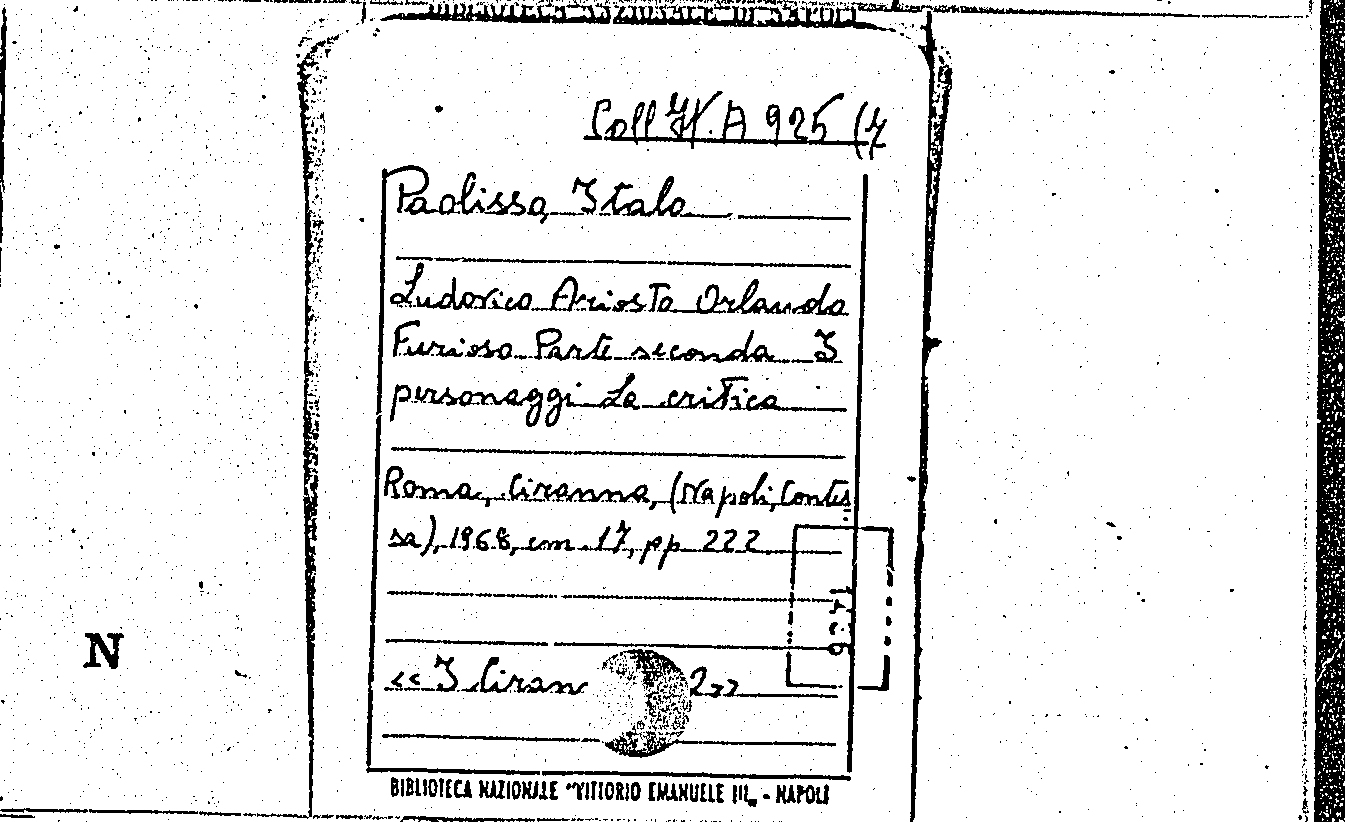 BIBLIOTECA NAZIONALE DI NAPOLI
Coll A 925 (7
Paolisso, Italo
Ludovico Ariosto Orlando
Furioso Parte seconda I
personaggi La critica
Roma, Ciranna, (Napoli, Contes
sa), 1968, cm. 17, pp 222
N
<< I Ciran 2>>
BIBLIOTECA NAZIONALE "VITTORIO EMANUELE III„ - NAPOLI